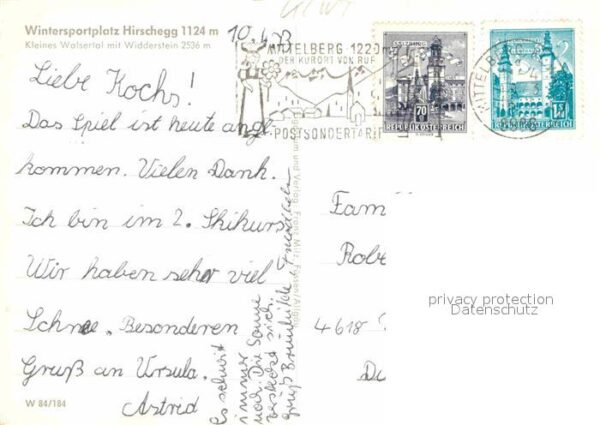 Wintersportplatz Hirschegg 1124 m
Kleines Walsertal mit Widderstein 2536 m
10.4.73
Liebe Kochs!
Das Spiel ist heute ange
kommen. Vielen Dank.
Ich bin im 2. Skikurs
Wir haben sehr viel
Schnee. Besonderen
Gruß an Ursula.
Astrid
Es schneit
immer
noch. Die Sonne
versteckt sich.
Gruß Brunhilde
W 84/184
und Verlag Franz Milz, Füssen/Allgäu
MITTELBERG 1220m
DER KURORT VON RUF
POSTSONDERTARIF
70
REPUBLIK ÖSTERREICH
2
REPUBLIK ÖSTERREICH
MITTELBERG
Fam
Robe
4618
privacy protection
Datenschutz